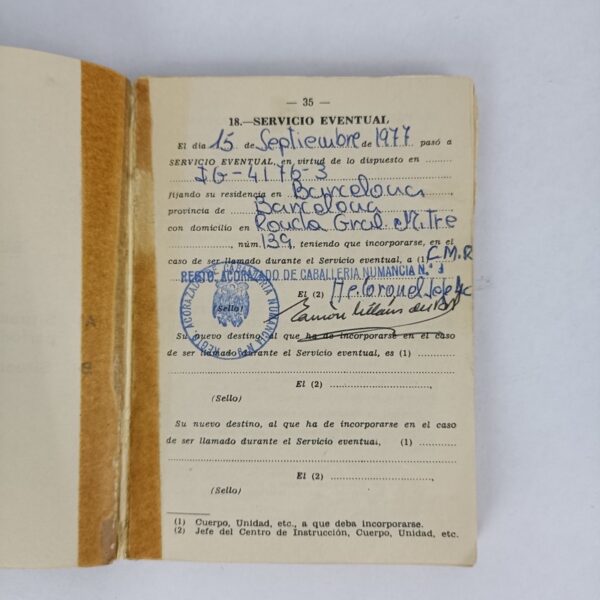 — 35 —
18.—SERVICIO EVENTUAL
El día 15 de Septiembre de 1977 pasó a
SERVICIO EVENTUAL, en virtud de lo dispuesto en
IG-4176-3
fijando su residencia en Barcelona
provincia de Barcelona
con domicilio en Ronda Gral Mitre
, núm. 139, teniendo que incorporarse, en el
caso de ser llamado durante el Servicio eventual, a (1) C.M.R
REGTO. ACORAZADO DE CABALLERIA NUMANCIA N.º
El (2)
(Sello)
REGTO ACORAZADO DE CABALLERIA NUMANCIA
Su nuevo destino, al que ha de incorporarse en el caso
de ser llamado durante el Servicio eventual, es (1)
El (2)
(Sello)
Su nuevo destino, al que ha de incorporarse en el caso
de ser llamado durante el Servicio eventual, (1)
El (2)
(Sello)
(1) Cuerpo, Unidad, etc., a que deba incorporarse.
(2) Jefe del Centro de Instrucción, Cuerpo, Unidad, etc.